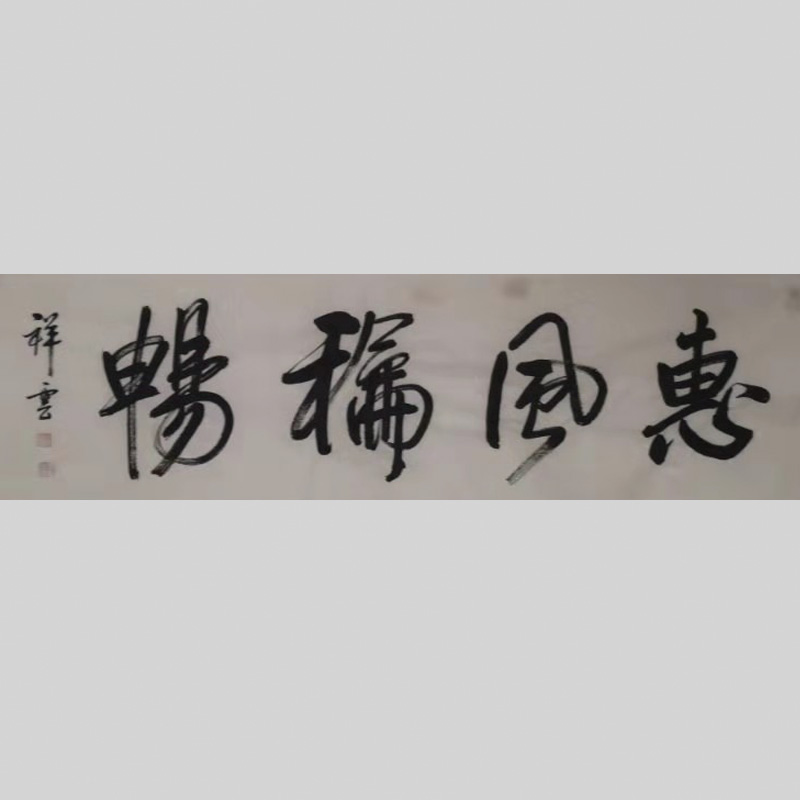 惠風龢暢
祥雲